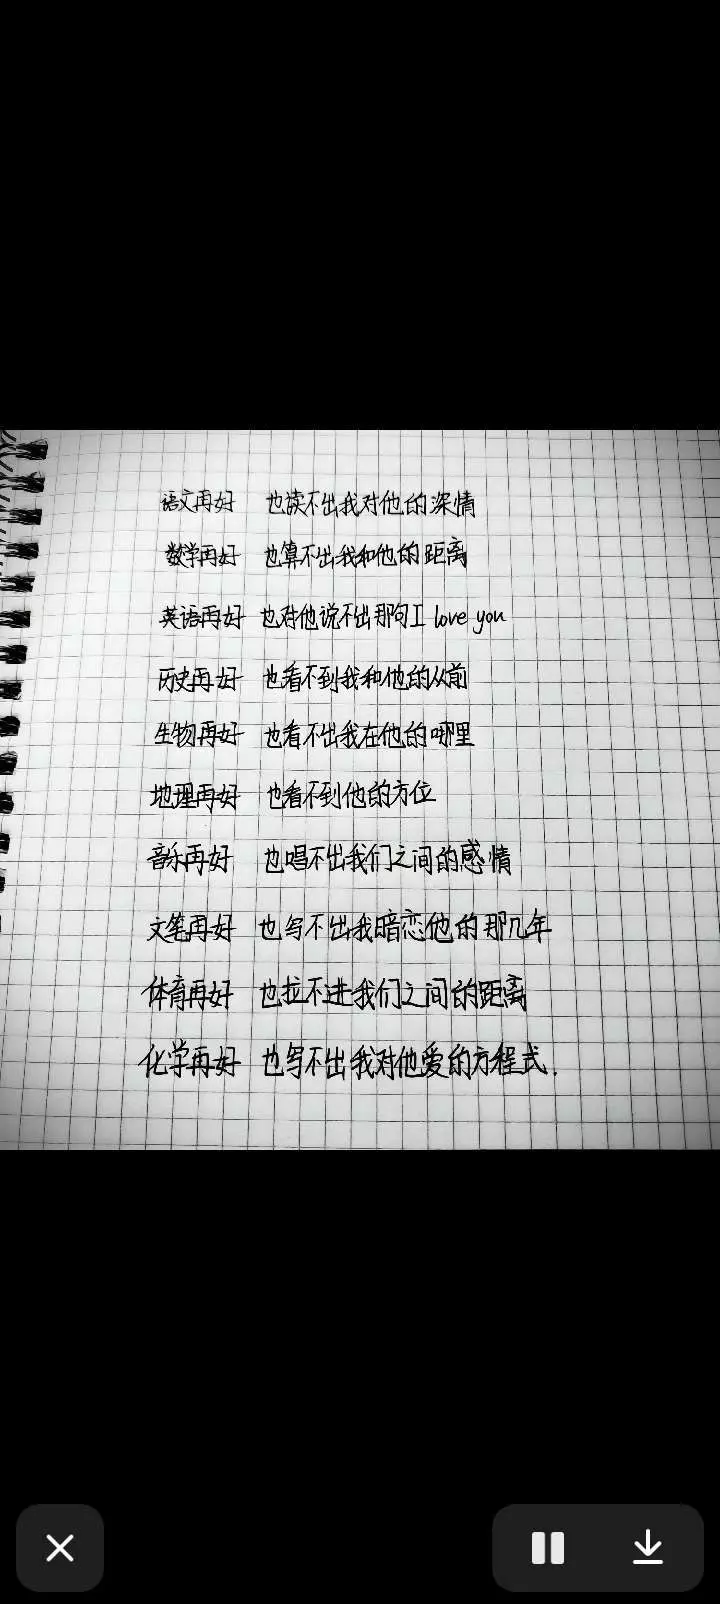 语文再好 也读不出我对他的深情
数学再好 也算不出我和他的距离
英语再好 也对他说不出那句I love you
历史再好 也看不到我和他的从前
生物再好 也看不出我在他的哪里
地理再好 也看不到他的方位
音乐再好 也唱不出我们之间的感情
文笔再好 也写不出我暗恋他的那几年
体育再好 也拉不进我们之间的距离
化学再好 也写不出我对他爱的方程式.